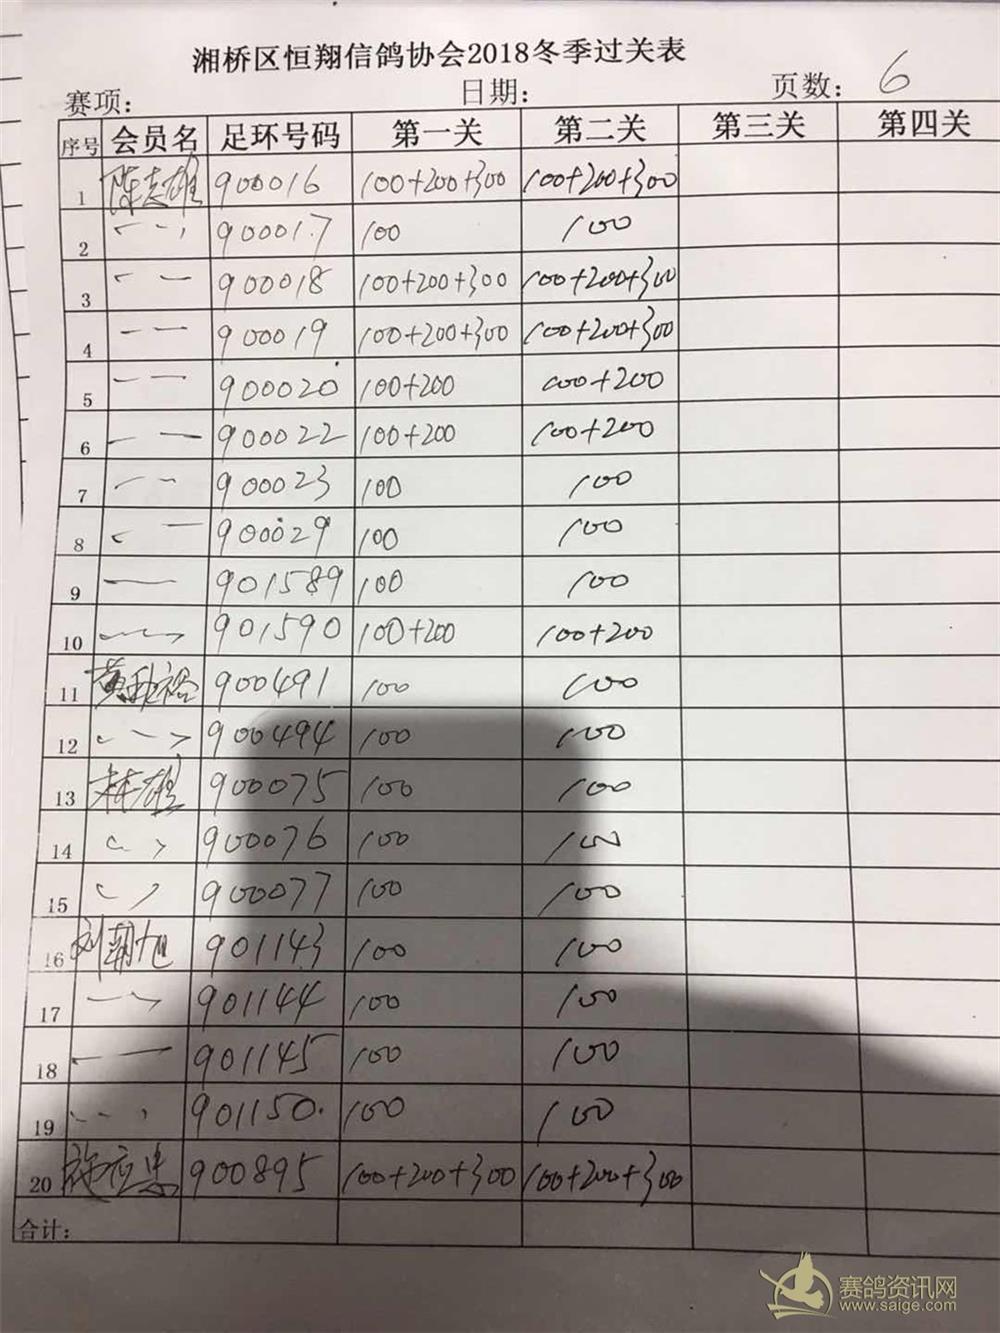 湘桥区恒翔信鸽协会2018冬季过关表
赛项： 日期： 页数： 6
序号 会员名 足环号码 第一关 第二关 第三关 第四关
1 陈志雄 900016 100+200+300 100+200+300
2 900017 100 100
3 900018 100+200+300 100+200+300
4 900019 100+200+300 100+200+300
5 900020 100+200 100+200
6 900022 100+200 100+200
7 900023 100 100
8 900029 100 100
9 901589 100 100
10 901590 100+200 100+200
11 900491 100 100
12 900494 100 100
13 林雄 900075 100 100
14 900076 100 100
15 900077 100 100
16 刘朝旭 901143 100 100
17 901144 100 100
18 901145 100 100
19 901150 100 100
20 施应忠 900895 100+200+300 100+200+300
合计：
赛鸽资讯网
www.saige.com